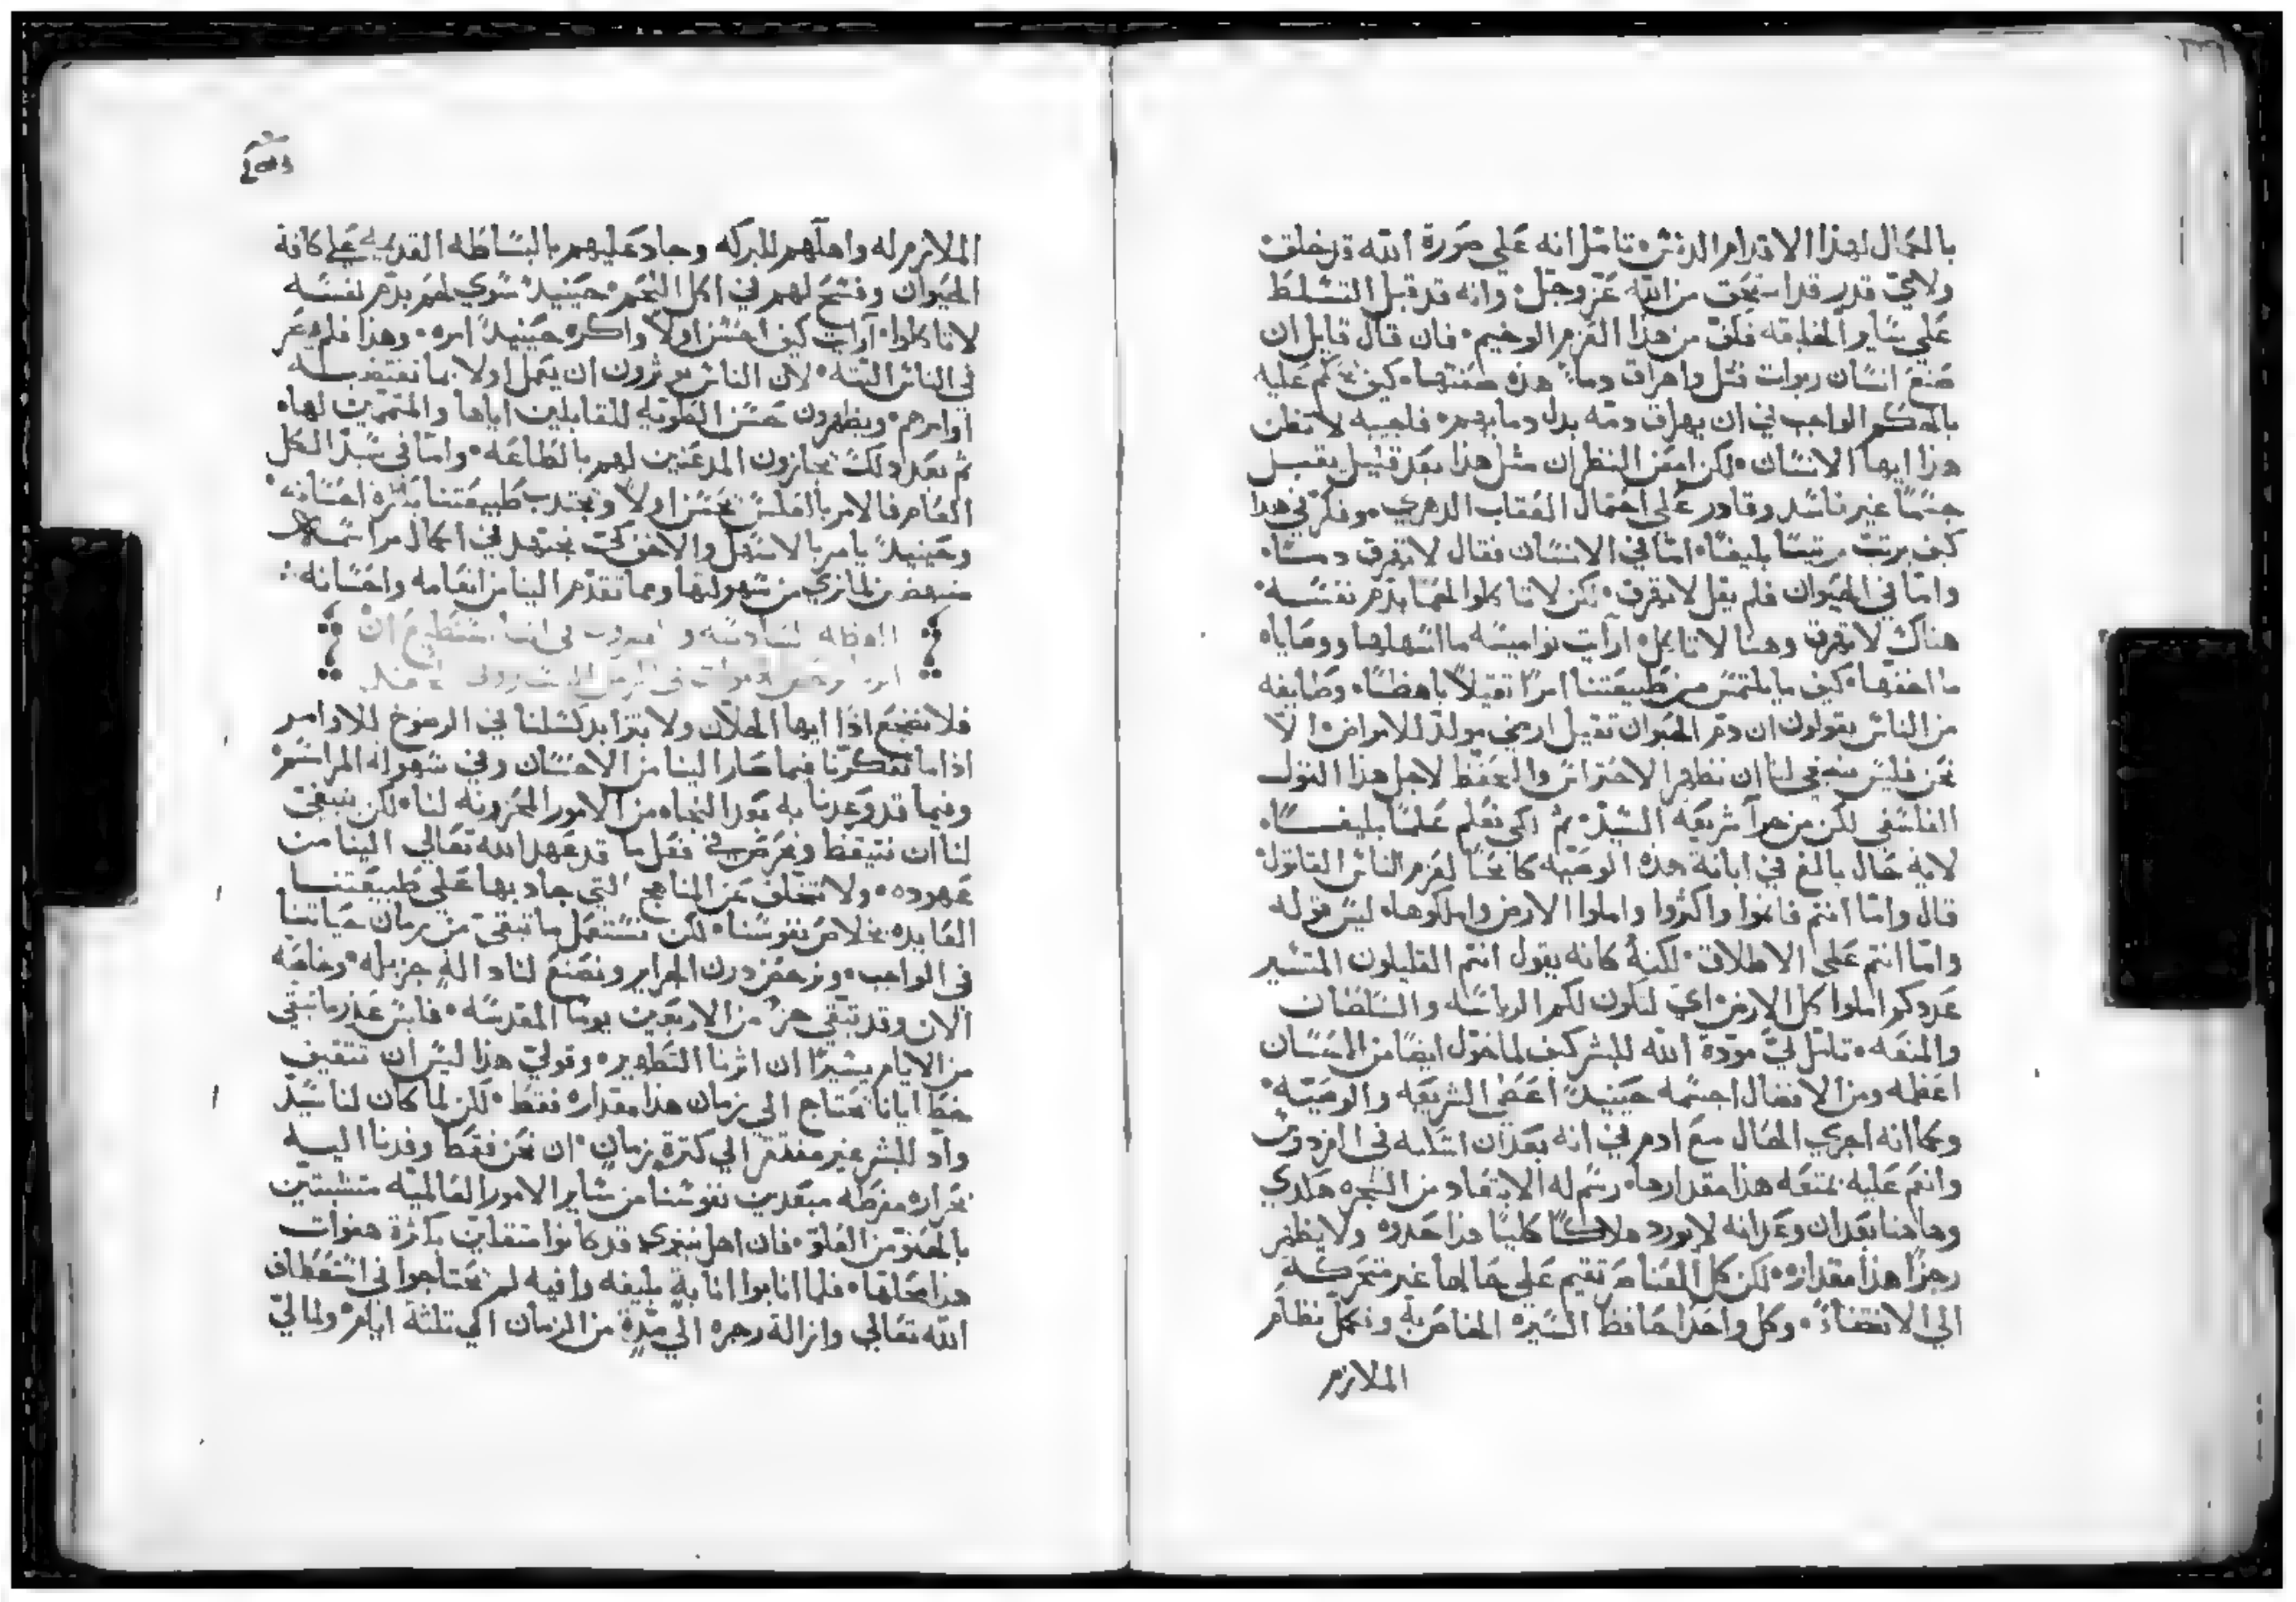 بالحال لهذا الاقدام الدنس تامل انه علي صورة الله قد خلق
ولاي قدر قد استحق من الله عز وجل وانه قد قبل التسلط
علي ساير الخليقه فكف من هذا العزم الوخيم فان قال قايل ان
صنع انسان ربوات قتل واهراق دما هذه صفتها كيف نحكم عليه
بالحكم الواجب في ان يهراق دمه بدل دمايهم فلجيبه لا تظن
هذا ايها الانسان لكن امعن النظر ان مثل هذا بعد قليل يقبل
جسما غير فاسد وقادر علي احتمال العقاب الدهري وفكر في هذا
كيف يرتب ترتيبا بليغا اما في الانسان فقال لا تهرق دما
واما في الحيوان فلم يقل لا تهرق لكن لا تاكلوا لحما بدم نفسه
هناك لا تهرق وهنا لا تاكل ارايت نواميسه ما اسهلها ووصاياه
ما اخفها كيف ما يلتمس من طبيعتنا امرا ثقيلا باهظا وطايفه
من الناس يقولون ان دم الحيوان ثقيل ارضي مولد للامراض الا
نحن فليس ينبغي لنا ان نظهر الاحتراس والتحفظ لاجل هذا القول
الفلسفي لكن من جرا شريعه السيد ثم لكي نعلم علما بليغا
لايه حال بالغ في ابانة هذه الوصيه كابحا لعزم الناس القاتول
قال واما انتم فانموا واكثروا واملوا الارض واملكوها ليس قوله
واما انتم علي الاطلاق لكنه كانه يقول انتم القليلون المتيسر
عددكم املوا كل الارض اي لتكون لكم الرياسه والسلطان
والمتعه تامل لي مودة الله للبشر كيف لما خول ايضا من الاحسان
اعظمه ومن الافضال اجسمه حينيذ اعطي الشريعه والوصيه
وكما انه اجري الحال مع ادم في انه بعد ان اسكنه في الفردوس
وانعم عليه بمتعه هذا مقدارها رسم له الابتعاد من الشجره هكذي
وهاهنا بعد ان وعد انه لا يورد هلاكا كليا هذا حدوه ولا يظهر
رجزا هذا مقداره لكن كل العناصر تقيم علي حالها غير متحركه
الي الانقضاء وكل واحد حافظ السيره الخاص به ونكمل نظام
الملازم
الملازم له واهلهم للبركه وجاد عليهم بالبساطه القديمه علي كافة
الحيوان وفسح لهم في اكل اللحم حينيذ سوي لحم بدم نفسه
لا تاكلوا ارايت كيف احسن اولا واكره حينيذ امره وهذا فلم يعم
في الناس البته لان الناس يوثرون ان يعمل اولا بما تقتضيه
اوامرهم ويظهرون حسن الطويه للقابلين اياها والمتممين لها
ثم بعد ذلك يجازون المذعنين لهم بالطاعه واما في سيد الكل
العام فالامر بالعكس يحسن اولا ويجتدب طبيعتنا بكثرة احسانه
وحينيذ يامر بالاسهل والاخف كي نجتهد في اكمال مراسمه
من سهولتها ومما تقدم الينا من انعامه واحسانه
العظه السادسه و في اننا نستطيع ان
فلا نضجع اذا ايها الخلان ولا يتزايد كسلنا في الرضوخ للاوامر
اذا ما تفكرنا فيما صار الينا من الاحسان وفي سهوله المراسم
وفيما قد وعدنا به بعد النجاه من الامور المحزونه لنا لكن ينبغي
لنا ان نتيقظ ونحرص في فعل ما قد عهد الله تعالي الينا من
عهوده ولا نتخلف عن المناهج التي جاد بها علي طبيعتنا
العايده بخلاص نفوسنا لكن نستعمل ما تبقي من زمان حياتنا
في الواجب ونرحض درن الجراير ونصنع لنا دالة جزيله وخاصه
الان وقد تبقي جزء من الاربعين يوما المقدسه فليس عذر ما تبقي
من الايام يسيرا ان اثرنا التطهير وقولي هذا ليس ان تثقيف
خطايانا تحتاج الي زمان هذا مقداره فقط لكن لما كان لنا سيد
واد للبشر غير مفتقر الي كثرة زمان ان نحن فقط وفدنا اليه
بحرارة مفرطه مبعدين نفوسنا من ساير الامور العالميه متشبتين
بالحنو من العلو فان اهل نينوي قد كانوا مثقلين بكثرة هفوات
هذا محلها فلما انابوا انابة بليغه وافيه لم يحتاجوا في استعطاف
الله تعالي وازالة رجزه الي مدة من الزمان اكي ثلثة ايام ولما لي